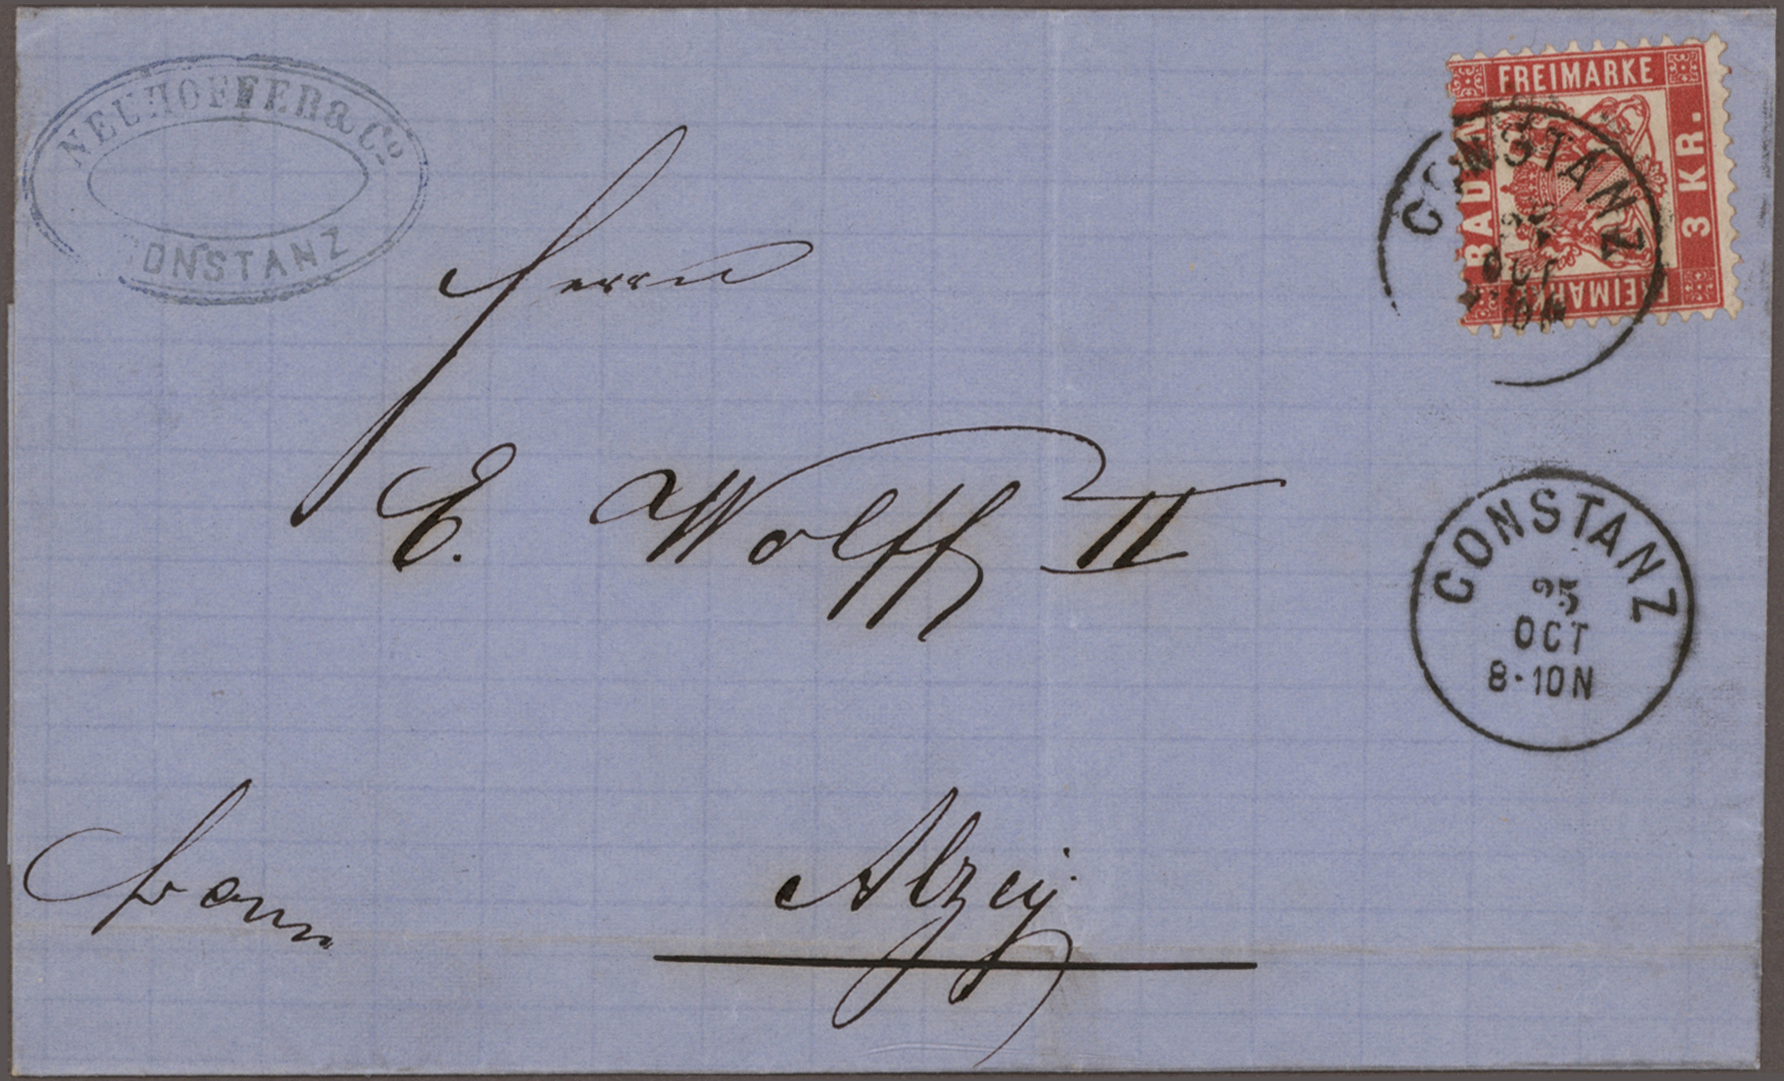 NEUHOFFER & Co
CONSTANZ
FREIMARKE
BADEN
3 KR.
FREIMARKE
CONSTANZ
25
OCT
Herrn
E. Wolff II
CONSTANZ
25
OCT
8·10N
franco
Alzey